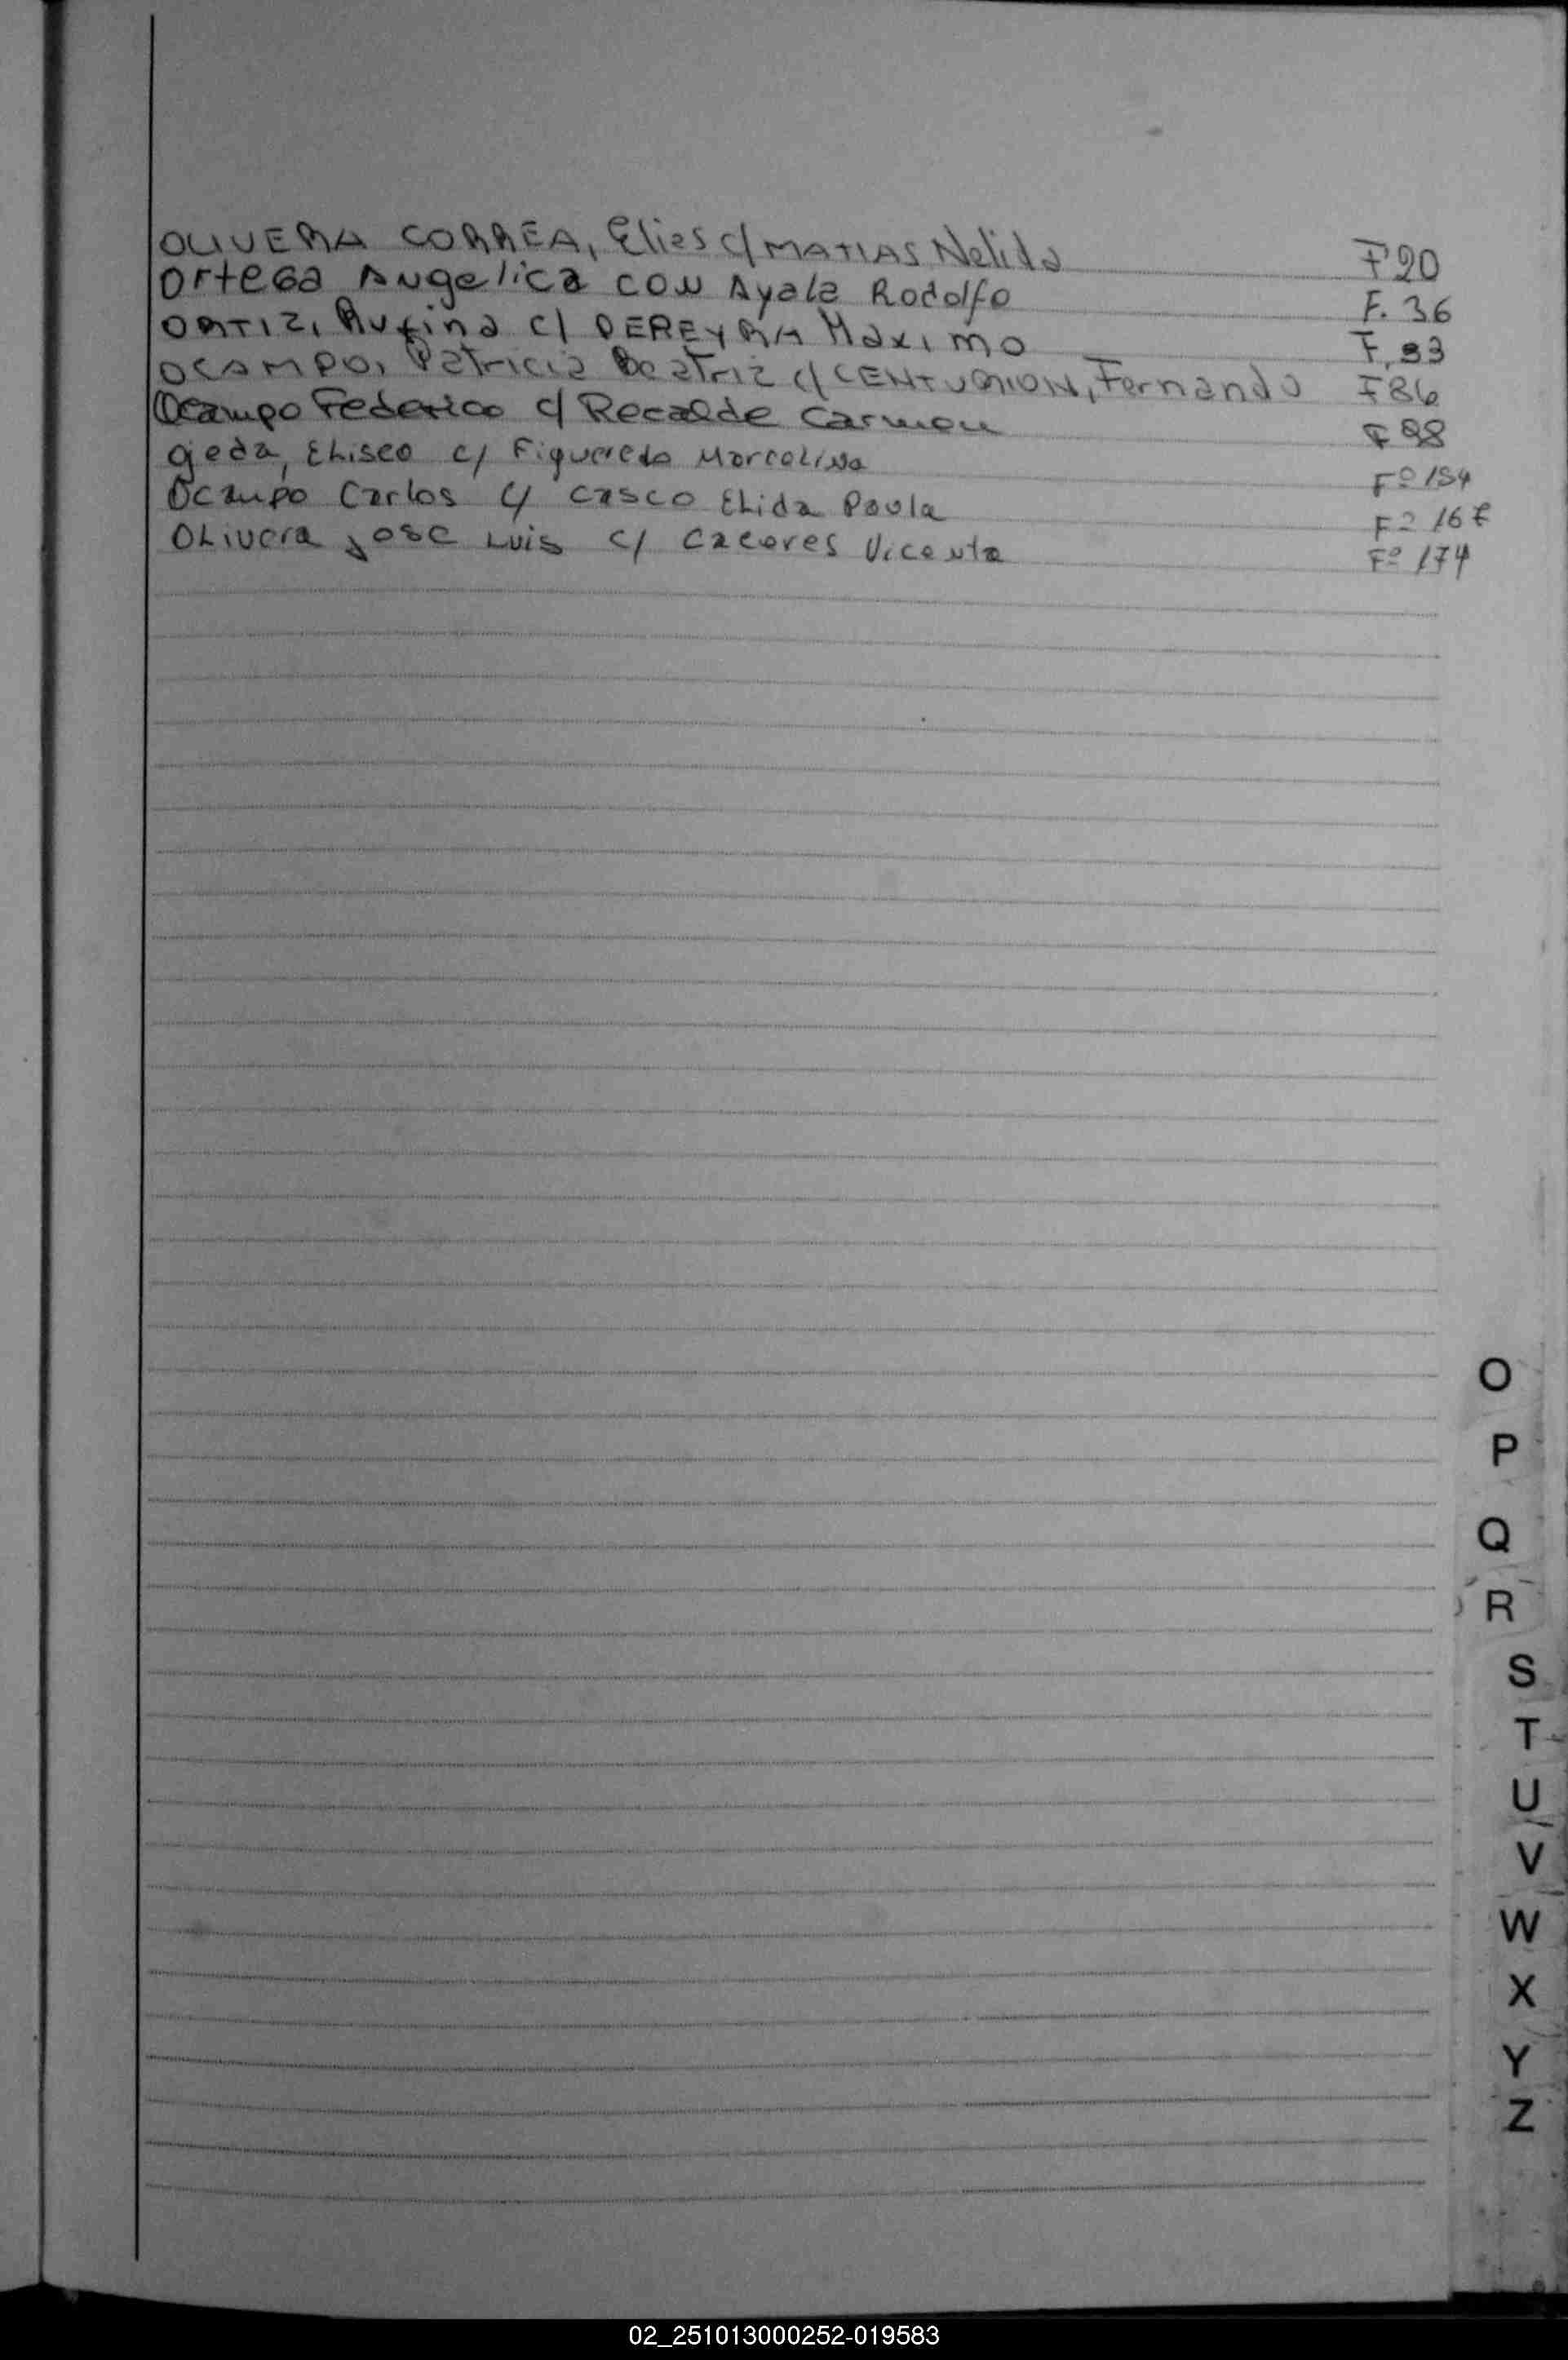 OLIVERA CORREA, Elias c/ MATIAS Nelida F 20
Ortega Angelica con Ayala Rodolfo F. 36
ORTIZ, Rufina c/ PEREYRA Maximo F.
OCAMPO, Patricia Beatriz c/ CENTURION, Fernando F 86
Ocampo Federico c/ Recalde Carmen F 98
Ojeda, Eliseo c/ Figueredo Marcolina Fº 154
Ocampo Carlos c/ Casco Elida Paula Fº
Olivera Jose Luis c/ Caceres Vicenta Fº 174
O
P
Q
R
S
T
U
V
W
X
Y
Z
02_251013000252-019583